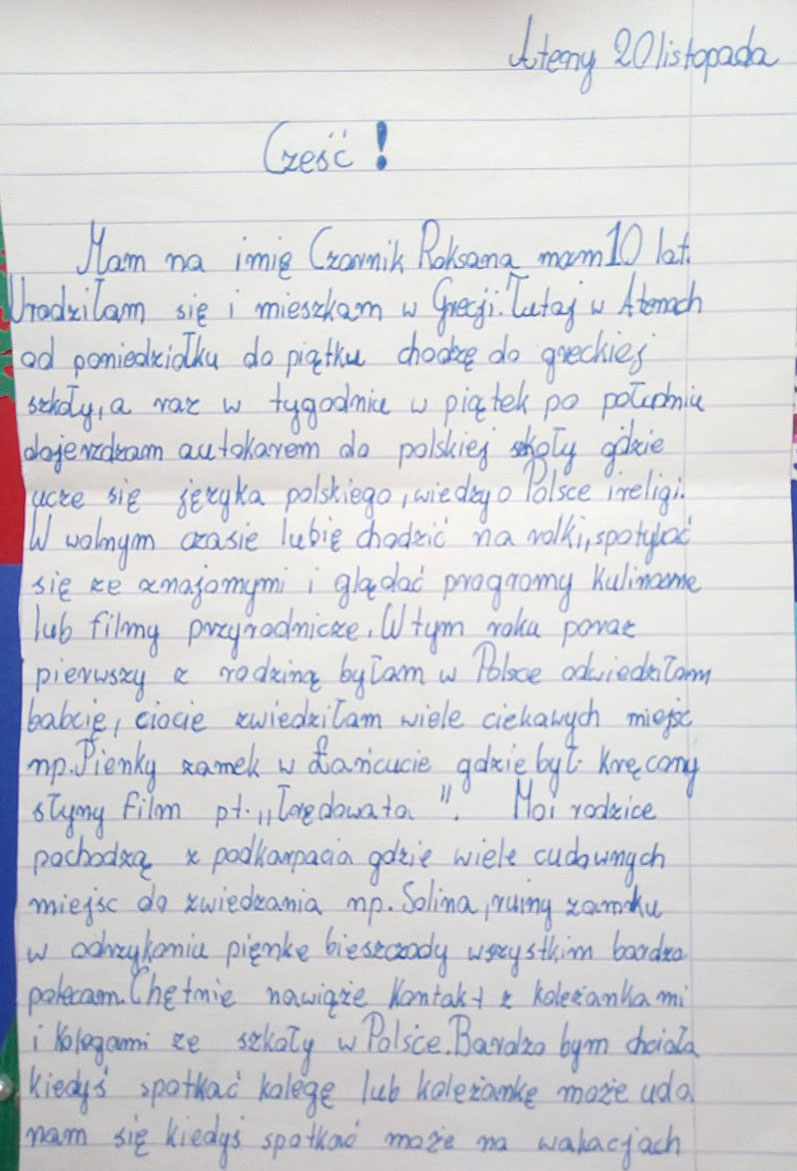 Ateny 20 listopada
Cześć!
Mam na imię Czarnik Roksana mam 10 lat.
Urodziłam się i mieszkam w Grecji. Tutaj w Atenach
od poniedziałku do piątku chodzę do greckiej
szkoły, a raz w tygodniu w piątek po południu
dojerzdzam autokarem do polskiej szkoły gdzie
ucze się języka polskiego, wiedzy o Polsce i religi.
W wolnym czasie lubię chodzić na rolki, spotykać
się ze znajomymi i glądać programy kulinarne
lub filmy przyrodnicze. W tym roku poraz
pierwszy z rodziną byłam w Polsce odwiedziłam
babcię, ciocie zwiedziłam wiele ciekawych miejsc
np. Pienky zamek w Łańcucie gdzie był kręcony
słymy film pt. „Trędowata". Moi rodzice
pochodzą z podkarpacia gdzie wiele cudownych
miejsc do zwiedzania np. Solina, ruiny zamku
w odrzykoniu pięnke bieszczady wszystkim bardzo
polecam. Chętnie nawiąże kontakt z koleżankami
i kolegami ze szkoły w Polsce. Bardzo bym chciała
kiedyś spotkać kolegę lub koleżankę może uda
nam się kiedyś spotkać może na wakacjach